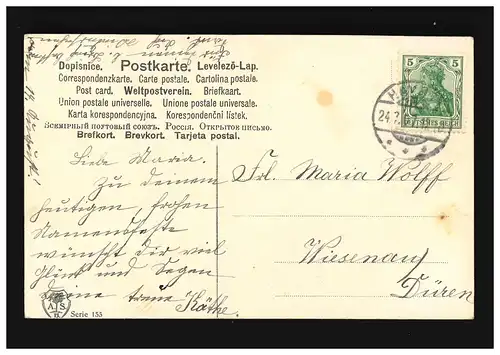 Dopisnice. Postkarte. Levelező-Lap.
Correspondenzkarte. Carte postale. Cartolina postale.
Post card. Weltpostverein. Briefkaart.
Union postale universelle. Unione postale universale.
Karta korespondencyjna. Korespondenční lístek.
Всемірный почтовый союзъ. Россія. Открытое письмо.
Brefkort. Brevkort. Tarjeta postal.
Liebe Maria.
Zu Deinem
heutigen, frohen
Namensfeste
wünscht dir viel
Glück und Segen
Deine treue Käthe.
Serie 155
5 5
DEUTSCHES REICH
24.7.
Frl. Maria Wolff
Wiesenau
Düren